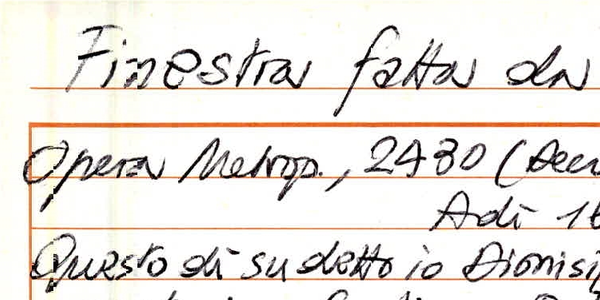 Finestra fatta da
Opera Metrop., 2430 (
Adì 16
Questo dì su detto io Dionisi